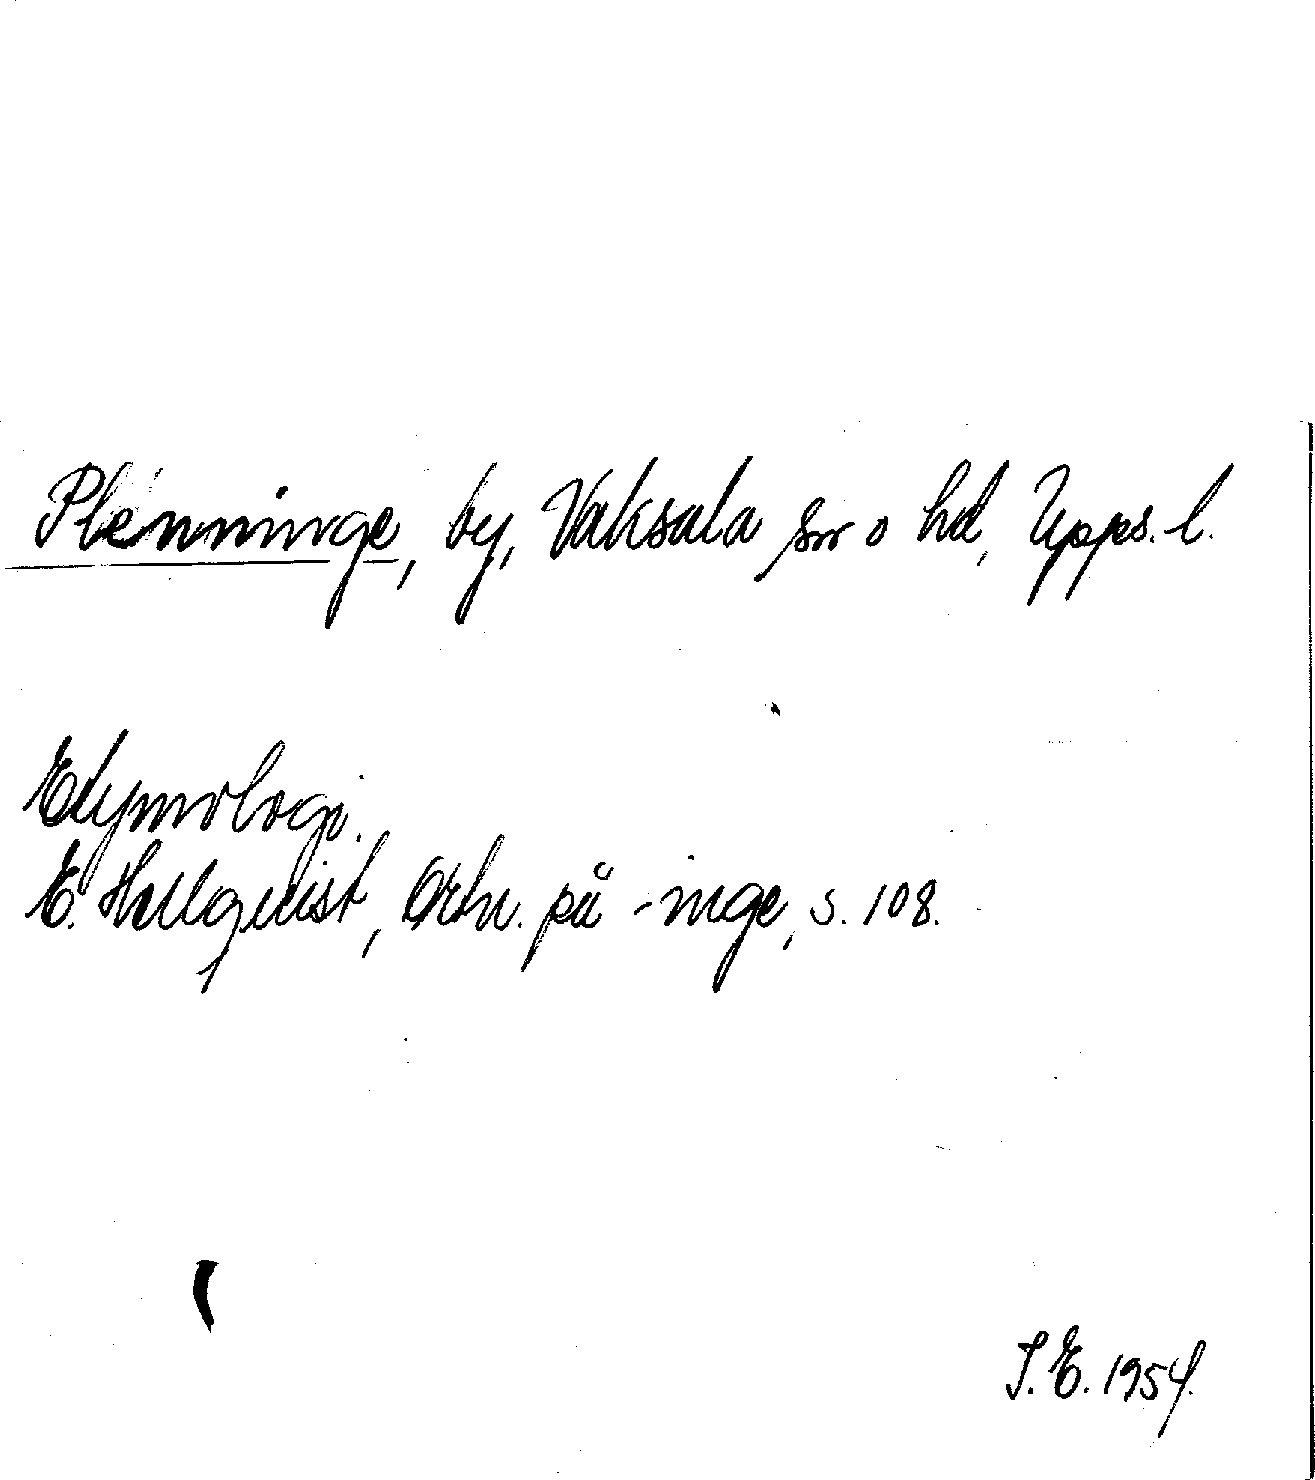 Plenninge, by, Vaksala sn o hd, Upps. l.
Etymologi.
E. Hellquist, Ortn. på -inge, s. 108.
S. E. 1954.